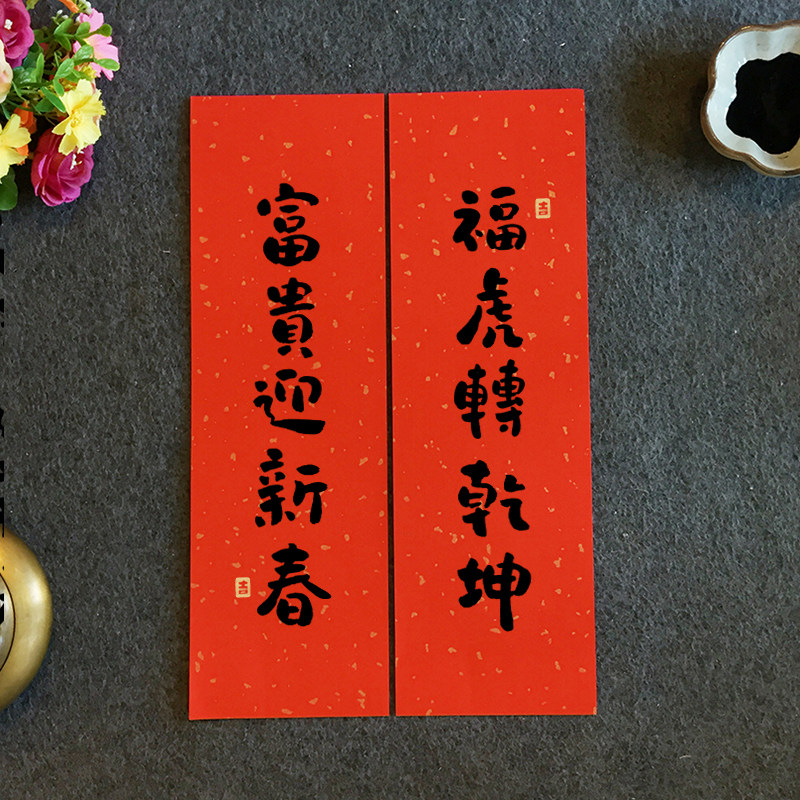 福虎轉乾坤
吉
富貴迎新春
吉